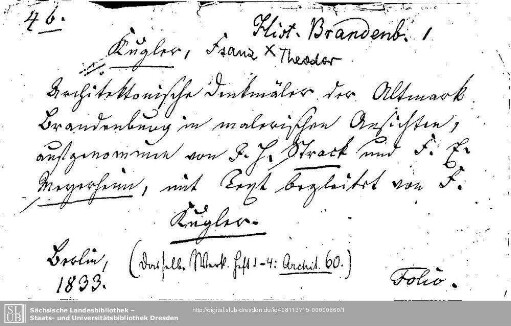 4 b.
Hist. Brandenb. 1
Kugler, Franz × Theodor
Architektonische Denkmäler der Altmark
Brandenburg in malerischen Ansichten,
aufgenommen von J. H. Strack und F. E.
Meyerheim, mit Text begleitet von F.
Kugler.
Berlin, (Dasselb. Werk. Heft 1-4: Archit. 60.)
1833. Folio.
SLUB
Sächsische Landesbibliothek –
Staats- und Universitätsbibliothek Dresden